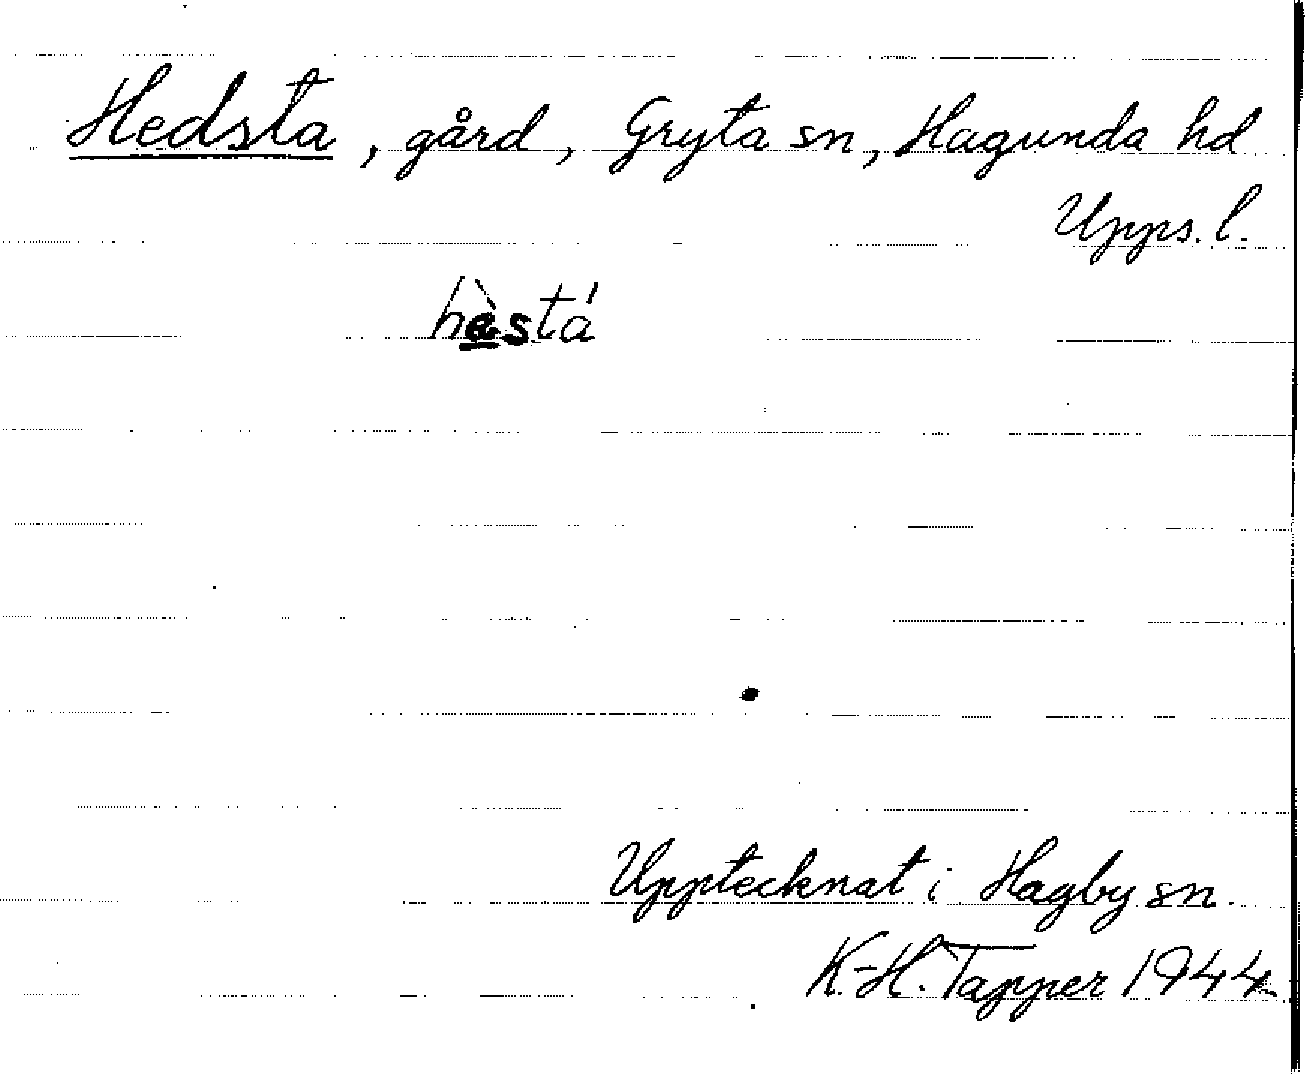 Hedsta, gård, Gryta sn, Hagunda hd
Upps. l.
hàstá
Upptecknat i Hagby sn.
K.-H. Tapper 1944.